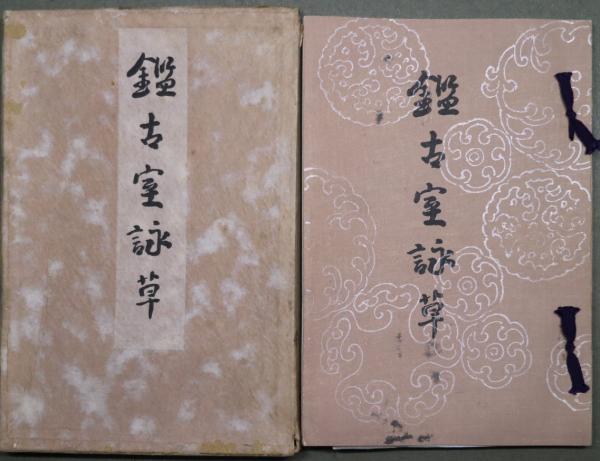 鑑古室詠草
鑑古室詠草